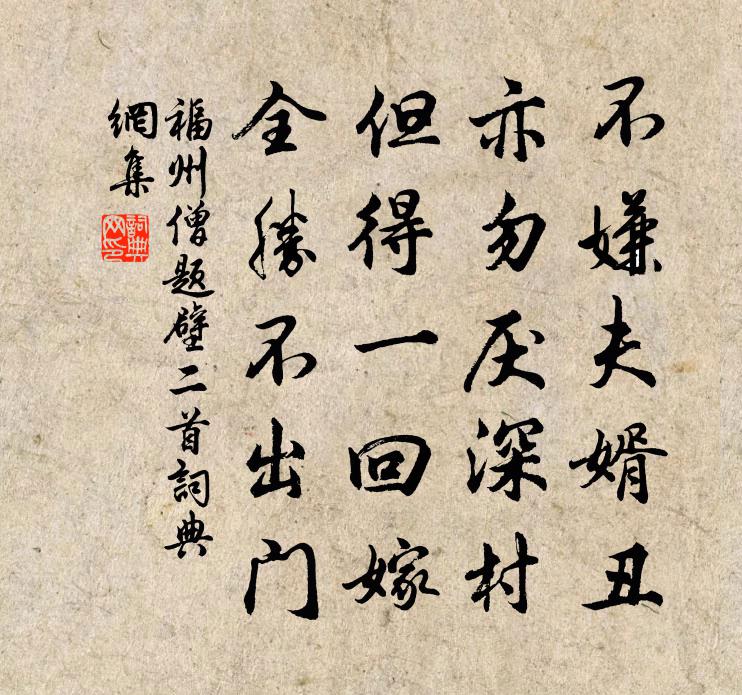 不嫌夫婿丑
亦勿厌深村
但得一回嫁
全勝不出门
福州僧题壁二首詞典
網集
詞典
网印